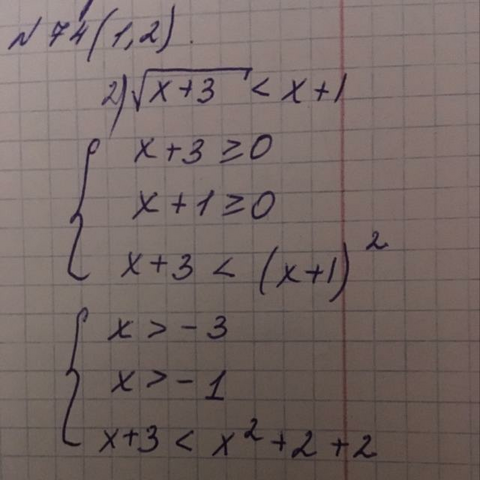 № 74 (1,2).
2) √x+3 < x+1
x+3 ≥ 0
x+1 ≥ 0
x+3 < (x+1)²
x > -3
x > -1
x+3 < x²+2+2